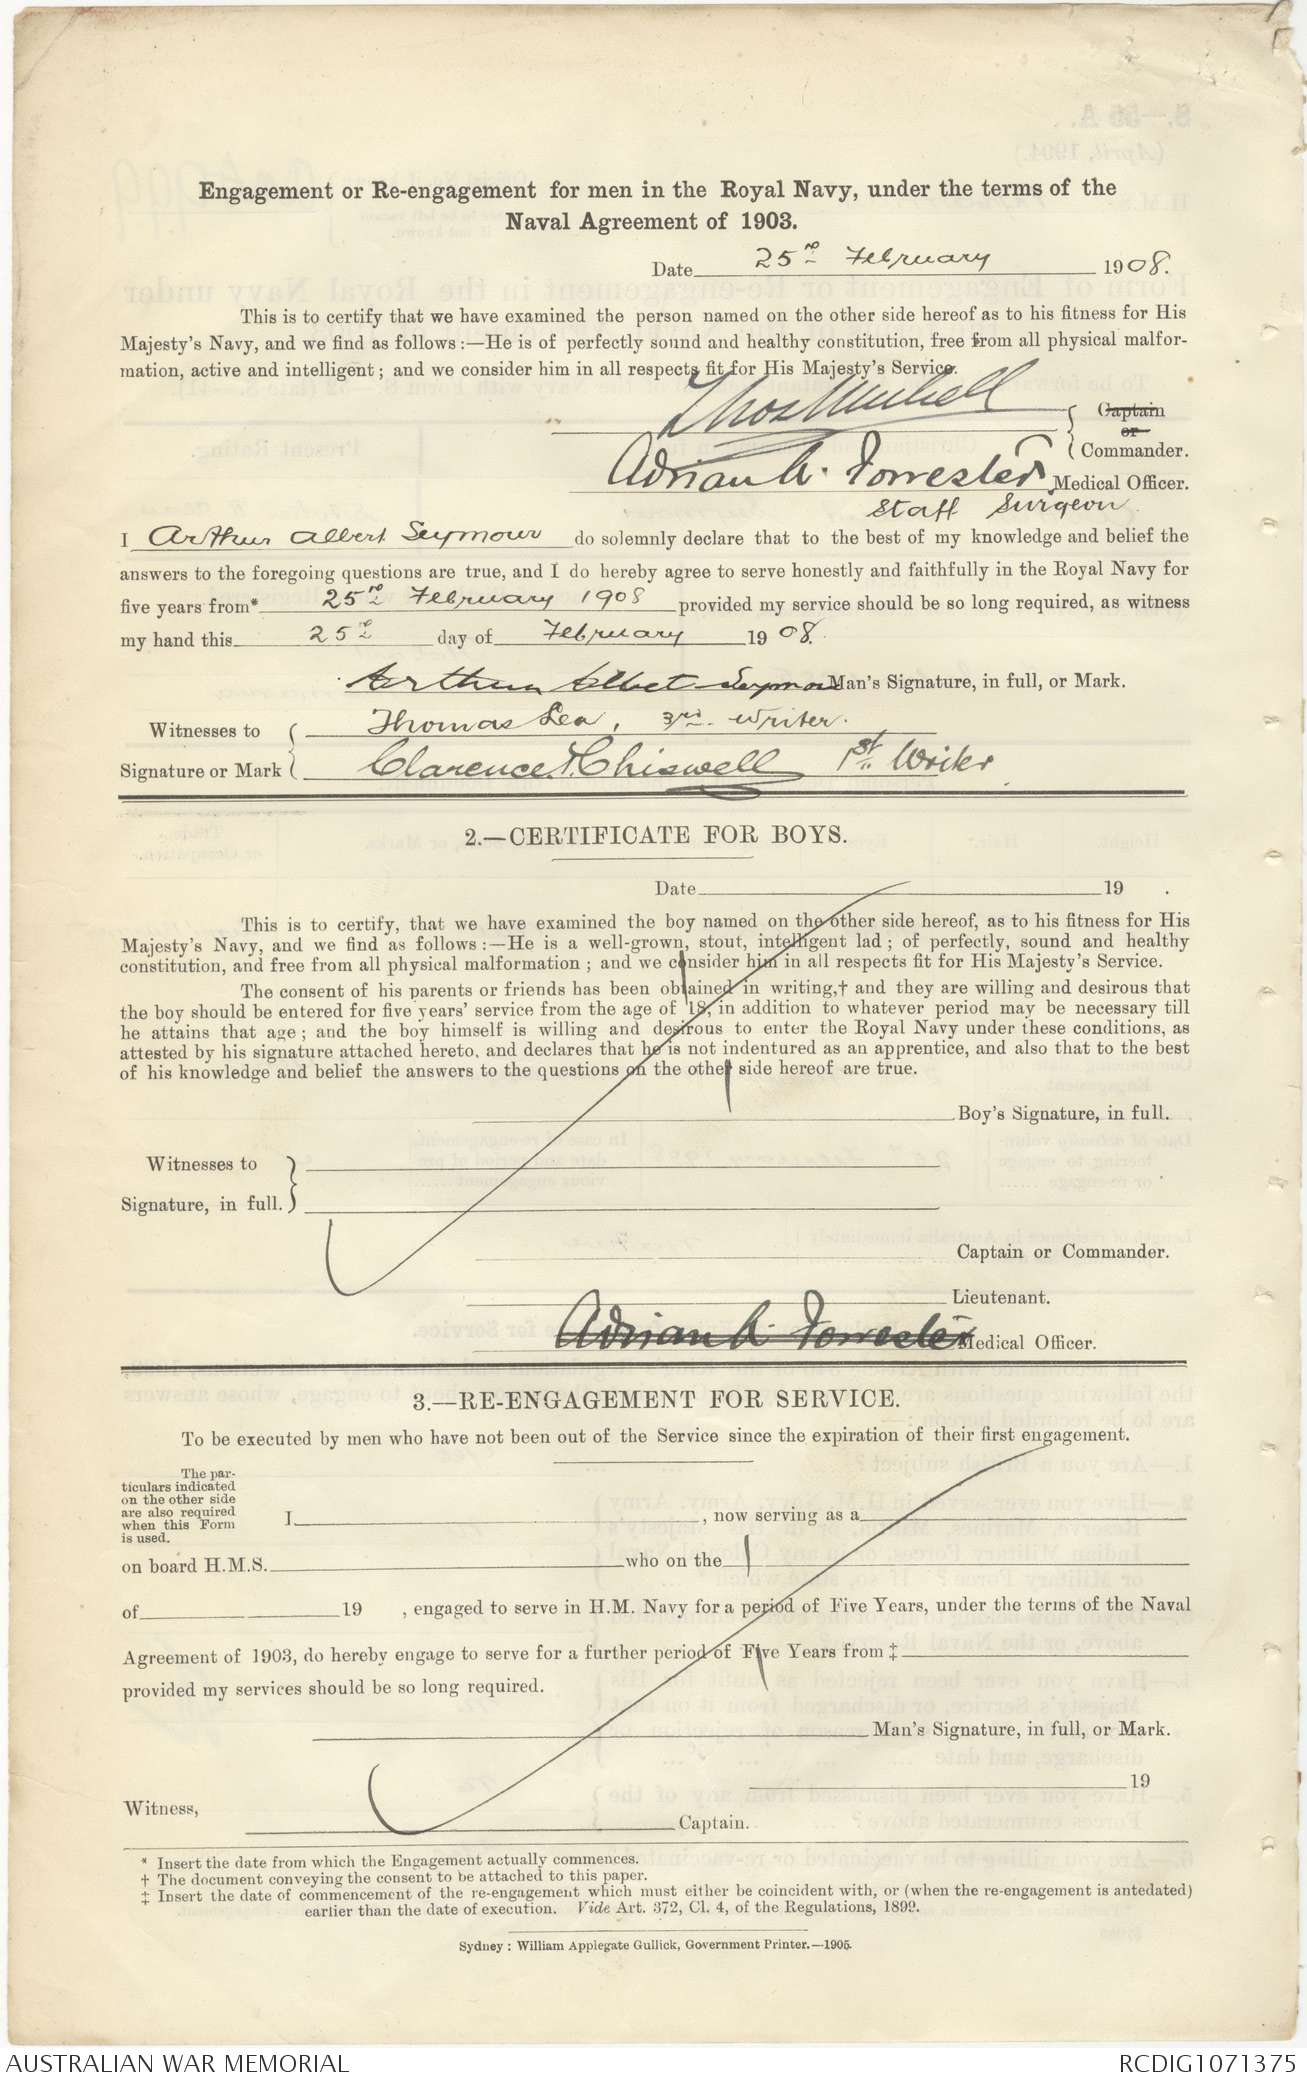 Engagement or Re-engagement for men in the Royal Navy, under the terms of the
Naval Agreement of 1903.
Date 25th February 1908.
This is to certify that we have examined the person named on the other side hereof as to his fitness for His
Majesty's Navy, and we find as follows:—He is of perfectly sound and healthy constitution, free from all physical malfor-
mation, active and intelligent; and we consider him in all respects fit for His Majesty's Service.
Thos
Captain
or
Commander.
Adrian A. Forrester Medical Officer.
Staff Surgeon
I Arthur Albert Seymour do solemnly declare that to the best of my knowledge and belief the
answers to the foregoing questions are true, and I do hereby agree to serve honestly and faithfully in the Royal Navy for
five years from* 25th February 1908 provided my service should be so long required, as witness
my hand this 25th day of February 1908.
Arthur Albet Seymour Man's Signature, in full, or Mark.
Witnesses to Thomas Lea, 3rd Writer.
Signature or Mark Clarence T. Chiswell 1st Writer
2.—CERTIFICATE FOR BOYS.
Date 19 .
This is to certify, that we have examined the boy named on the other side hereof, as to his fitness for His
Majesty's Navy, and we find as follows:—He is a well-grown, stout, intelligent lad; of perfectly, sound and healthy
constitution, and free from all physical malformation; and we consider him in all respects fit for His Majesty's Service.
The consent of his parents or friends has been obtained in writing,† and they are willing and desirous that
the boy should be entered for five years' service from the age of 18, in addition to whatever period may be necessary till
he attains that age; and the boy himself is willing and desirous to enter the Royal Navy under these conditions, as
attested by his signature attached hereto, and declares that he is not indentured as an apprentice, and also that to the best
of his knowledge and belief the answers to the questions on the other side hereof are true.
Boy's Signature, in full.
Witnesses to
Signature, in full.
Captain or Commander.
Lieutenant.
Adrian A. Forrester Medical Officer.
3.—RE-ENGAGEMENT FOR SERVICE.
To be executed by men who have not been out of the Service since the expiration of their first engagement.
The par-
ticulars indicated
on the other side
are also required
when this Form
is used.
I , now serving as a
on board H.M.S. who on the
of 19 , engaged to serve in H.M. Navy for a period of Five Years, under the terms of the Naval
Agreement of 1903, do hereby engage to serve for a further period of Five Years from ‡
provided my services should be so long required.
Man's Signature, in full, or Mark.
19
Witness,
Captain.
* Insert the date from which the Engagement actually commences.
† The document conveying the consent to be attached to this paper.
‡ Insert the date of commencement of the re-engagement which must either be coincident with, or (when the re-engagement is antedated)
earlier than the date of execution. Vide Art. 372, Cl. 4, of the Regulations, 1899.
Sydney: William Applegate Gullick, Government Printer.—1905.
AUSTRALIAN WAR MEMORIAL
RCDIG1071375